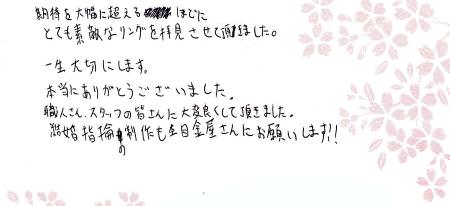 期待を大幅に超える ほどに
とても素敵なリングを拝見させて頂ました。
一生大切にします。
本当にありがとうございました。
職人さん、スタッフの皆さんに大変良くして頂きました。
結婚指輪の制作も杢目金屋さんにお願いします!!